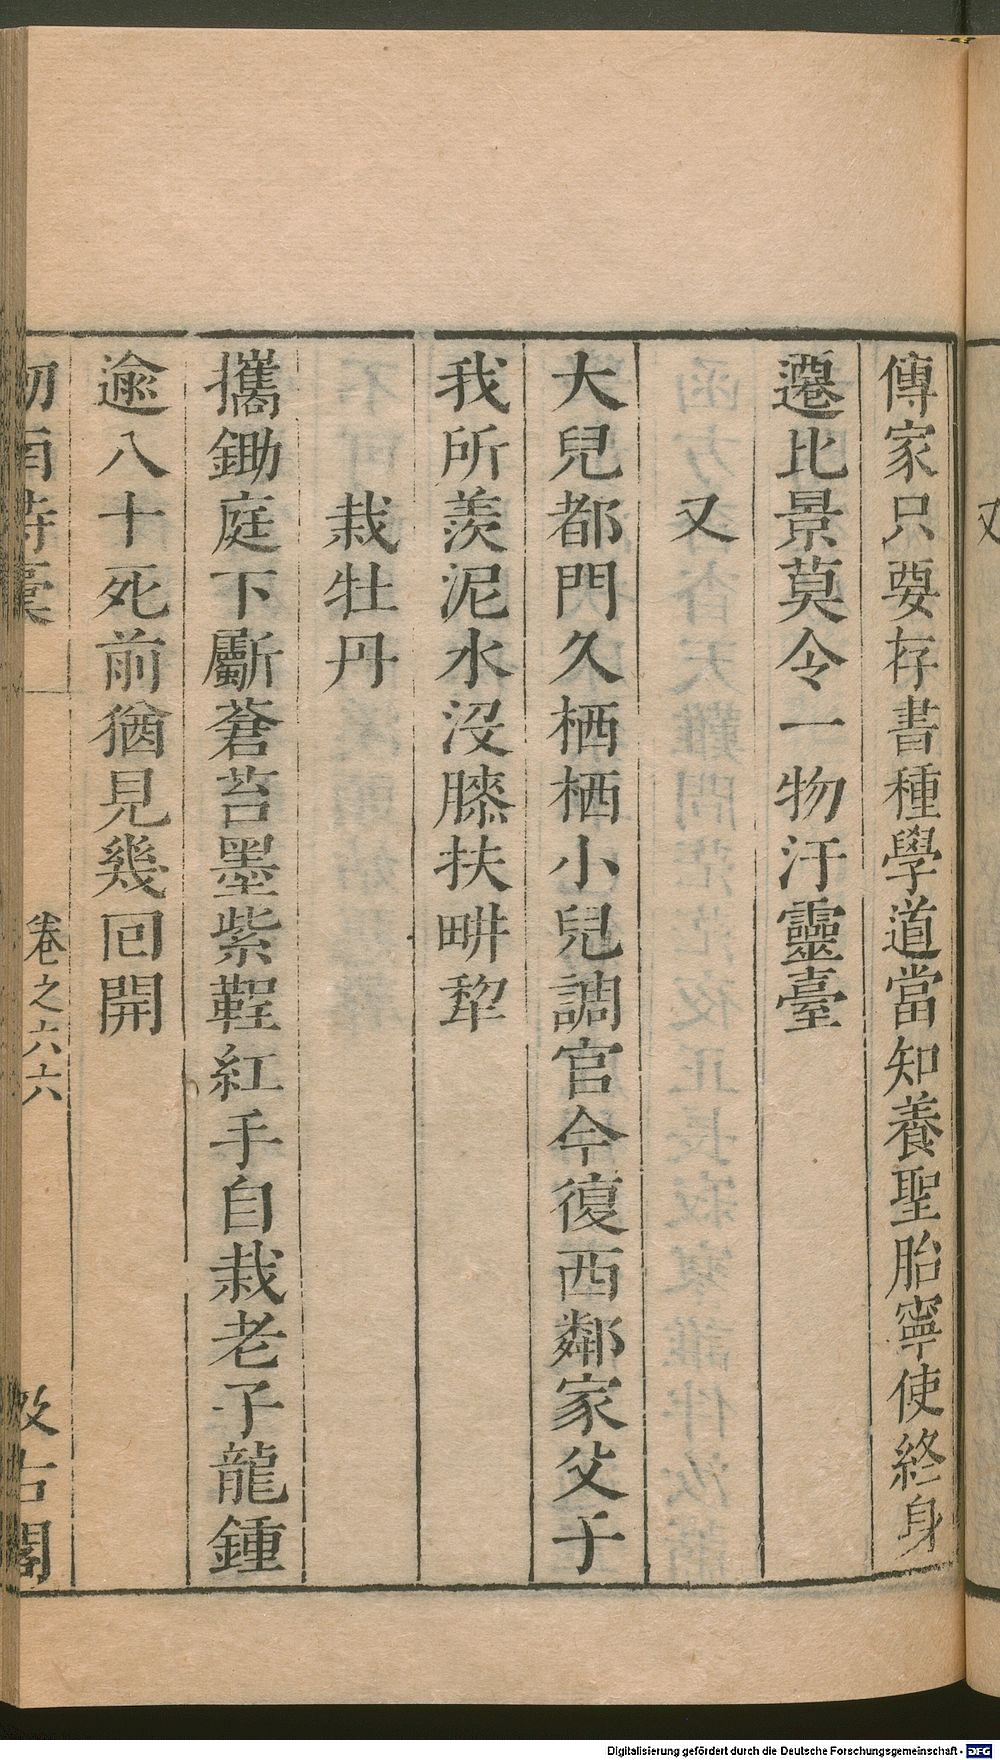 傳家只要存書種學道當知養聖胎寧使終身
遷比景莫令一物汙靈臺
又
大兒都門久栖栖小兒調官今復西鄰家父子
我所羨泥水没膝扶畊犂
栽牡丹
攜鋤庭下斸蒼苔墨紫鞓紅手自栽老子龍鍾
逾八十死前猶見幾回開
劒南詩稾
卷之六六
汲古閣
Digitalisierung gefördert durch die Deutsche Forschungsgemeinschaft - DFG